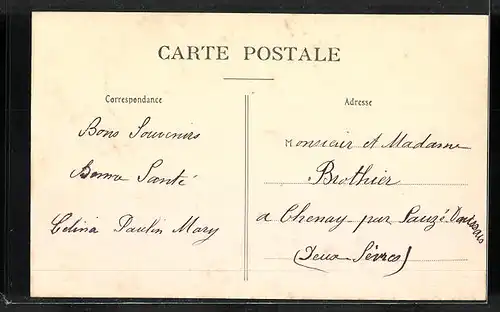 CARTE POSTALE
Correspondance
Adresse
Bons Souvenirs
Bonne Santé
Célina Paulin Mary
Monsieur et Madame
Brothier
a Chenay par Sauzé Vaussais
(Deux Sèvres)